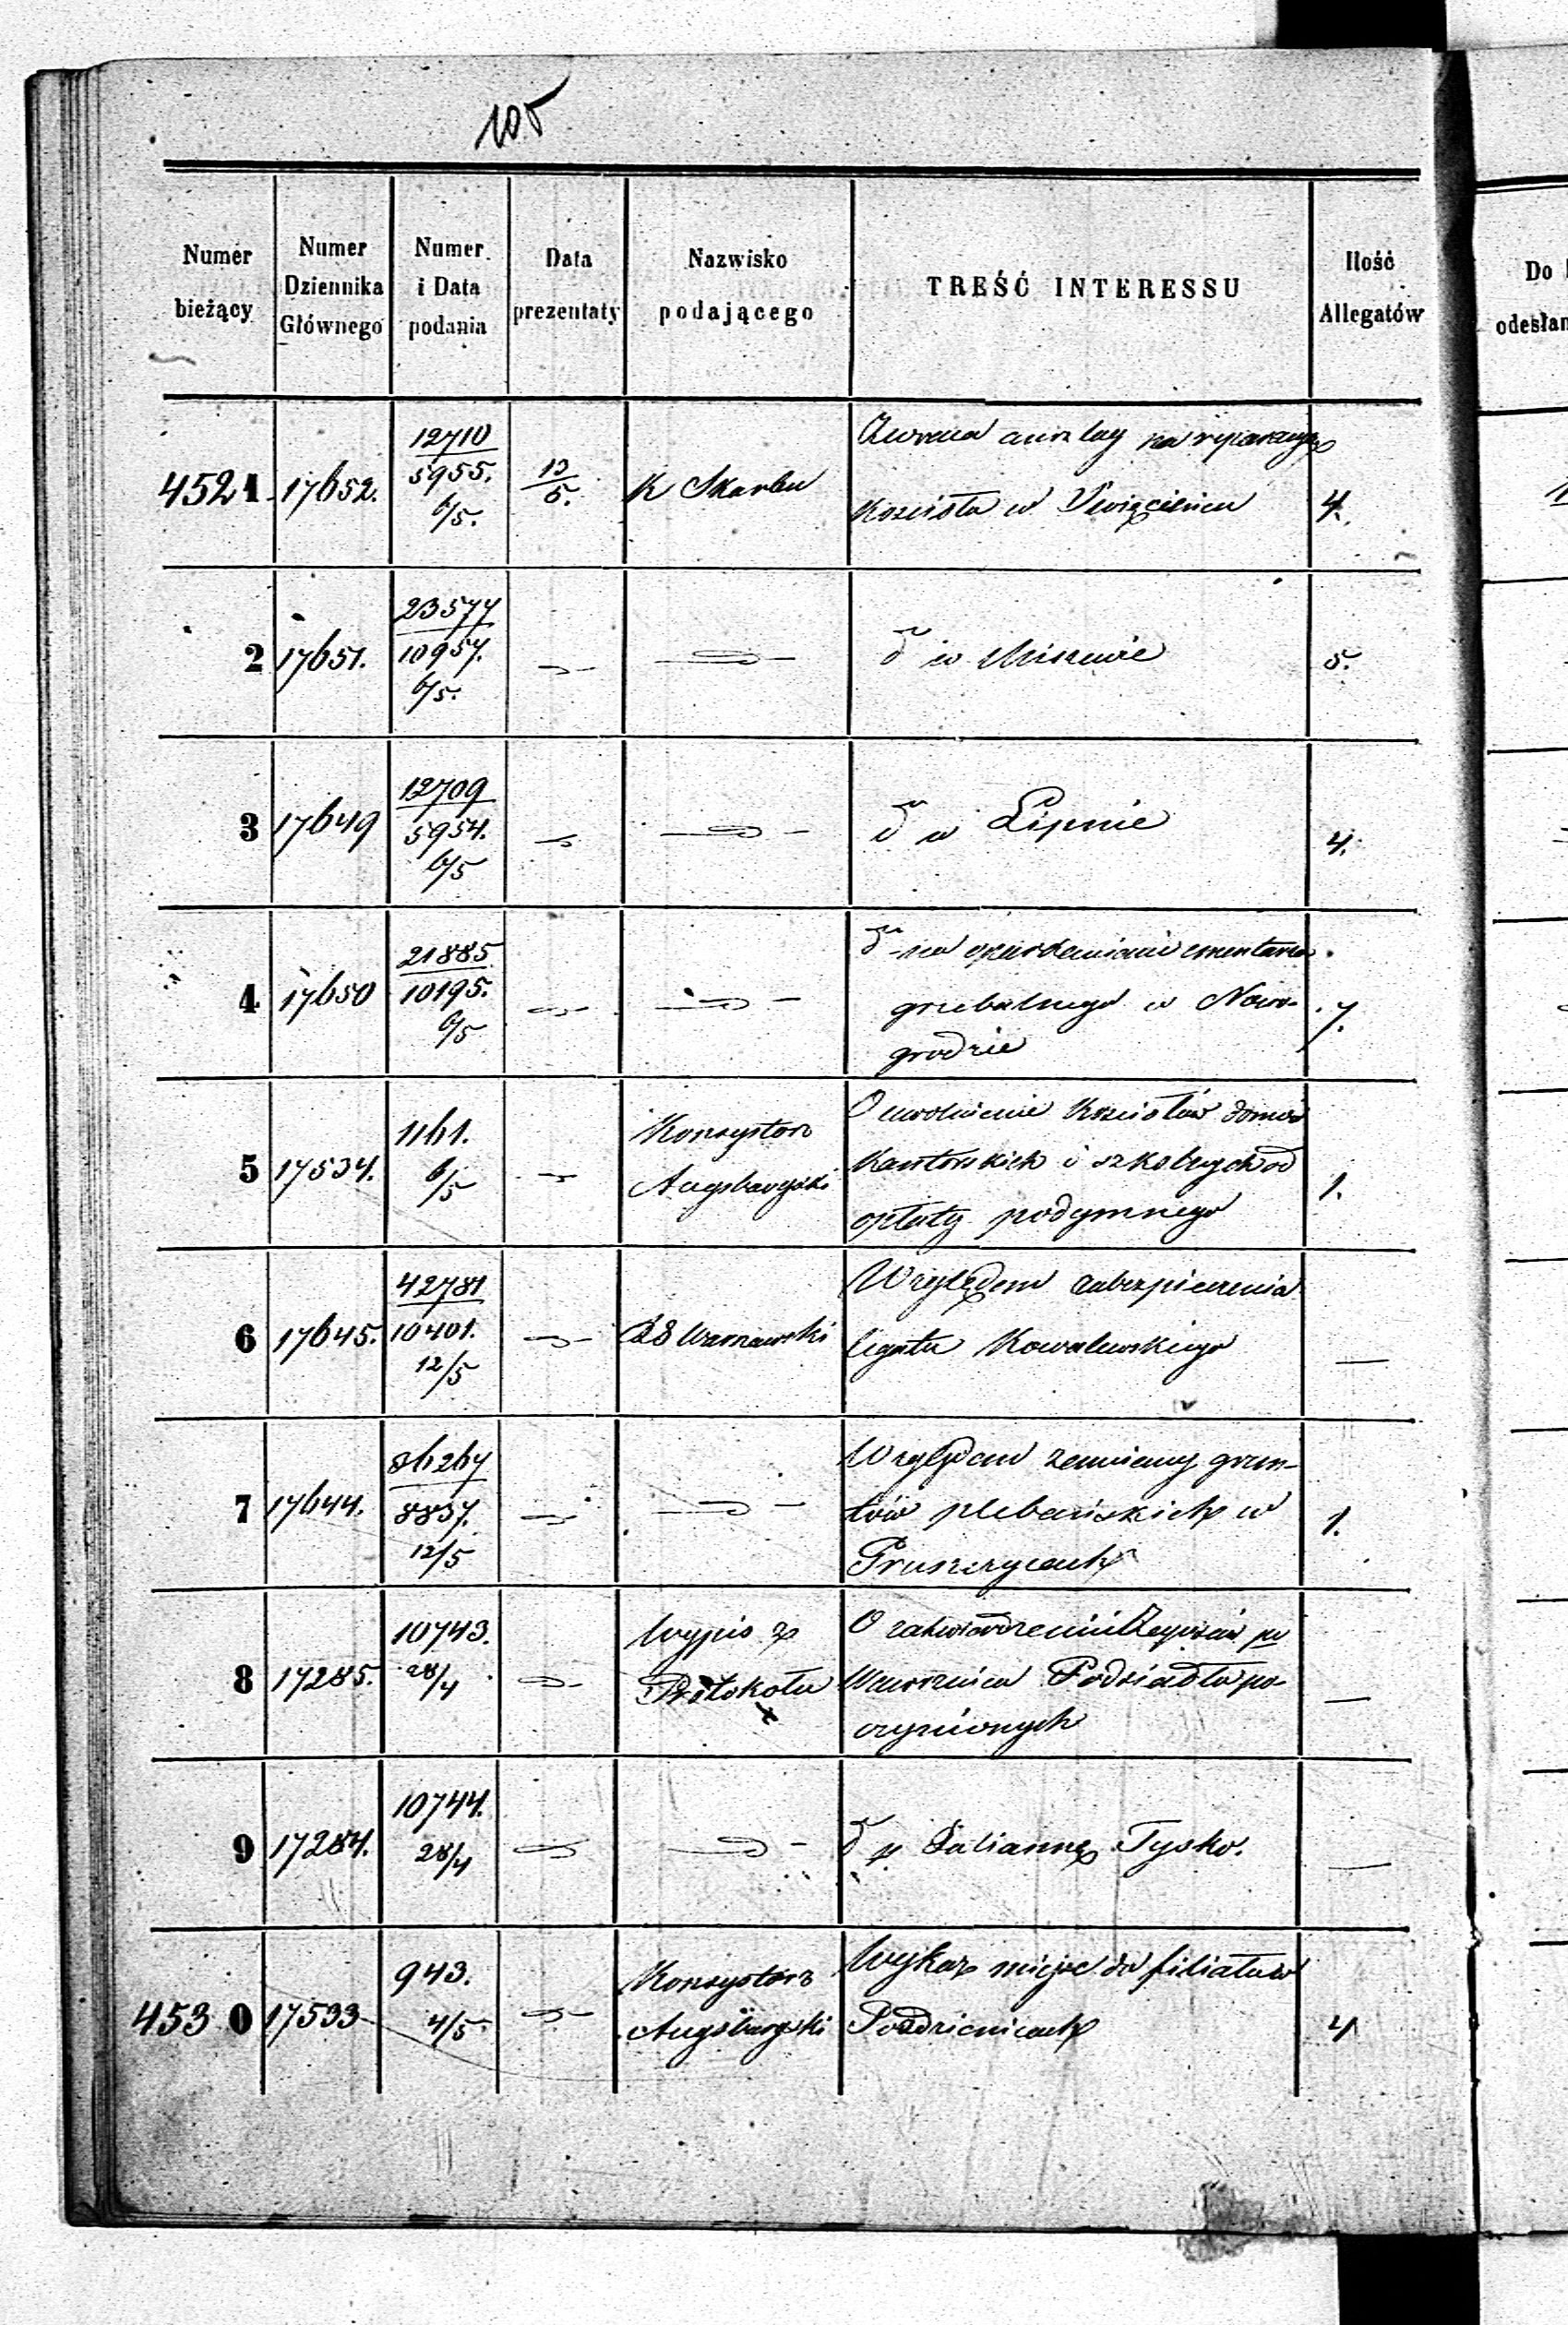 105
Numer bieżący
Numer Dziennika Głównego
Numer i Data podania
Data prezentaty
Nazwisko podającego
TREŚĆ INTERESSU
Ilość Allegatów
Do
odesłan
4521. 17652. 12710 / 5955. 6/5. 13/5. K Skarbu
na
Kościoła w Święcienicu 4.
2 17651. 23577 / 10957. 6/5. d° w Miszewie 5.
3 17649 12709 / 5954. 6/5 d° w Lipnie 4.
4 17650 21885. / 10195. 6/5 d° na cmentarza
grzebalnego w Nowo-
grodzie 7.
5 17534. 1161. 6/5 Konsystorz Augsburgski
O uwolnienie Kościołów domów
Kantorskich i szkolnych od
opłaty podymnego 1.
6 17645. 42781 / 10401. 12/5 Warszawski
Względem zabezpieczenia
legatu Kowalewskiego —
7 17644. 86267 / 8837. 12/5
Względem zamiany grun-
tów plebańskich w
Pruszczycach 1.
8 17285. 10743. 28/4 Wypis z Protokołu
O zatwierdzenie Zapisów pr
Wawrzeńca Podsiadło po-
czynionych —
9 17284. 10744. 28/4 d° p. Juliannę Tysko. —
4530 17533 943. 4/5 Konsystorz Augsburgski
Wykaz miejsc do filiału w
4